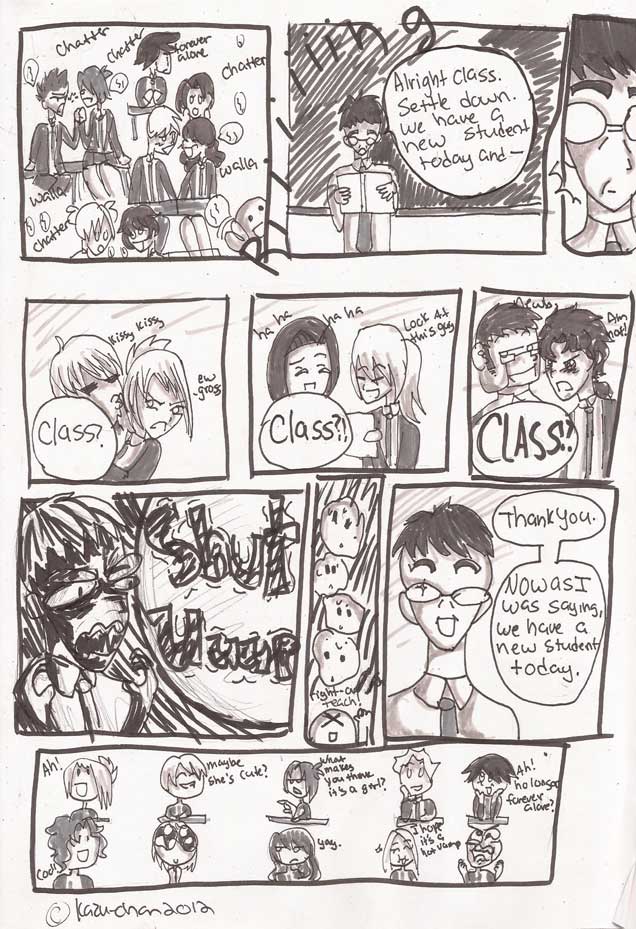 chatter
chatter
forever
alone
chatter
walla
walla
chatter
Briiiing
Alright Class.
Settle down.
We have a
new student
today and—
Kissy Kissy
ew
gross
Class?
ha ha
ha ha
Look At
this guy
Class?!
newb
Am
not!
CLASS!?
Shut
Up
fight-o
teach!
Thank you.
Now as I
was saying,
we have a
new student
today.
Ah!
maybe
she's cute?
what
makes
you think
it's a girl?
Ah!
no longer
forever
alone?
cool!
yay.
I hope
it's a
hot vamp
© kazu-chan 2012